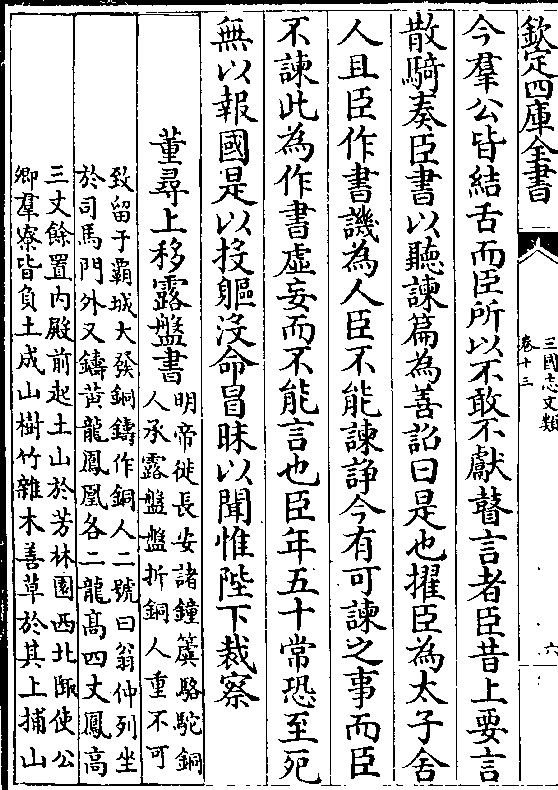 欽定四庫全書
三國志文類
卷十三
六
今羣公皆結舌而臣所以不敢不獻瞽言者臣昔上要言
散騎奏臣書以聽諫篇為善詔曰是也擢臣為太子舍
人且臣作書譏為人臣不能諫諍今有可諫之事而臣
不諫此為作書虛妄而不能言也臣年五十常恐至死
無以報國是以投軀沒命冒昧以聞惟陛下裁察
董尋上移露盤書
明帝徙長安諸鐘簴駱駝銅
人承露盤盤折銅人重不可
致留于霸城大發銅鑄作銅人二號曰翁仲列坐
於司馬門外又鑄黃龍鳳凰各二龍高四丈鳳高
三丈餘置內殿前起土山於芳林園西北陬使公
卿羣寮皆負土成山樹竹雜木善草於其上捕山